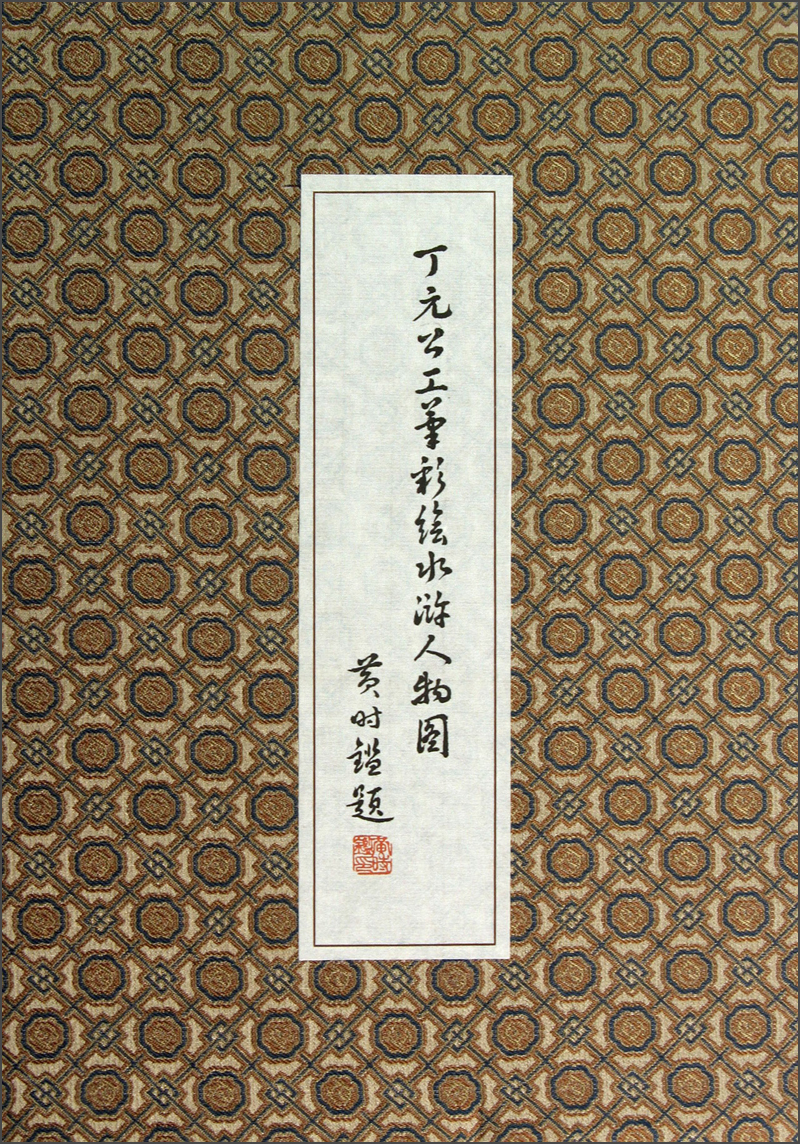 丁元公工笔彩绘水浒人物图
黄时鑑题